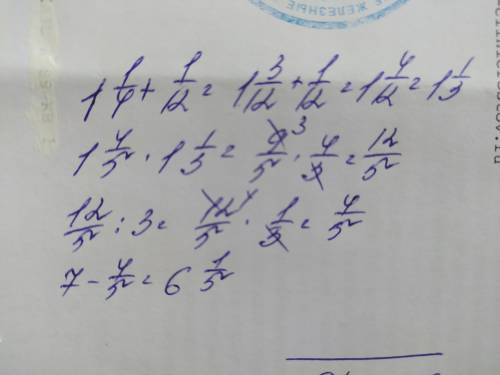 ЖЕЛЕЗНЫЕ
1 1/4 + 1/12 = 1 3/12 + 1/12 = 1 4/12 = 1 1/3
1 4/5 · 1 1/3 = 9/5 3 · 4/3 = 12/5
12/5 : 3 = 12/5 4 · 1/3 = 4/5
7 - 4/5 = 6 1/5